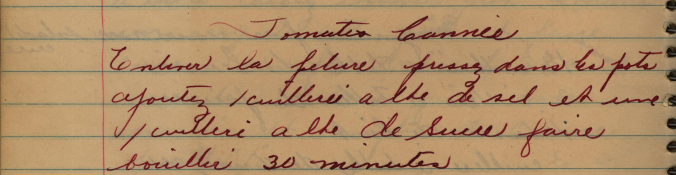 Tomates Cannée
Enlever la pelure pressez dans les pots
ajoutez 1 cuillerée a thé de sel et une
1 cuilleré a thé de Sucre faire
bouillir 30 minutes